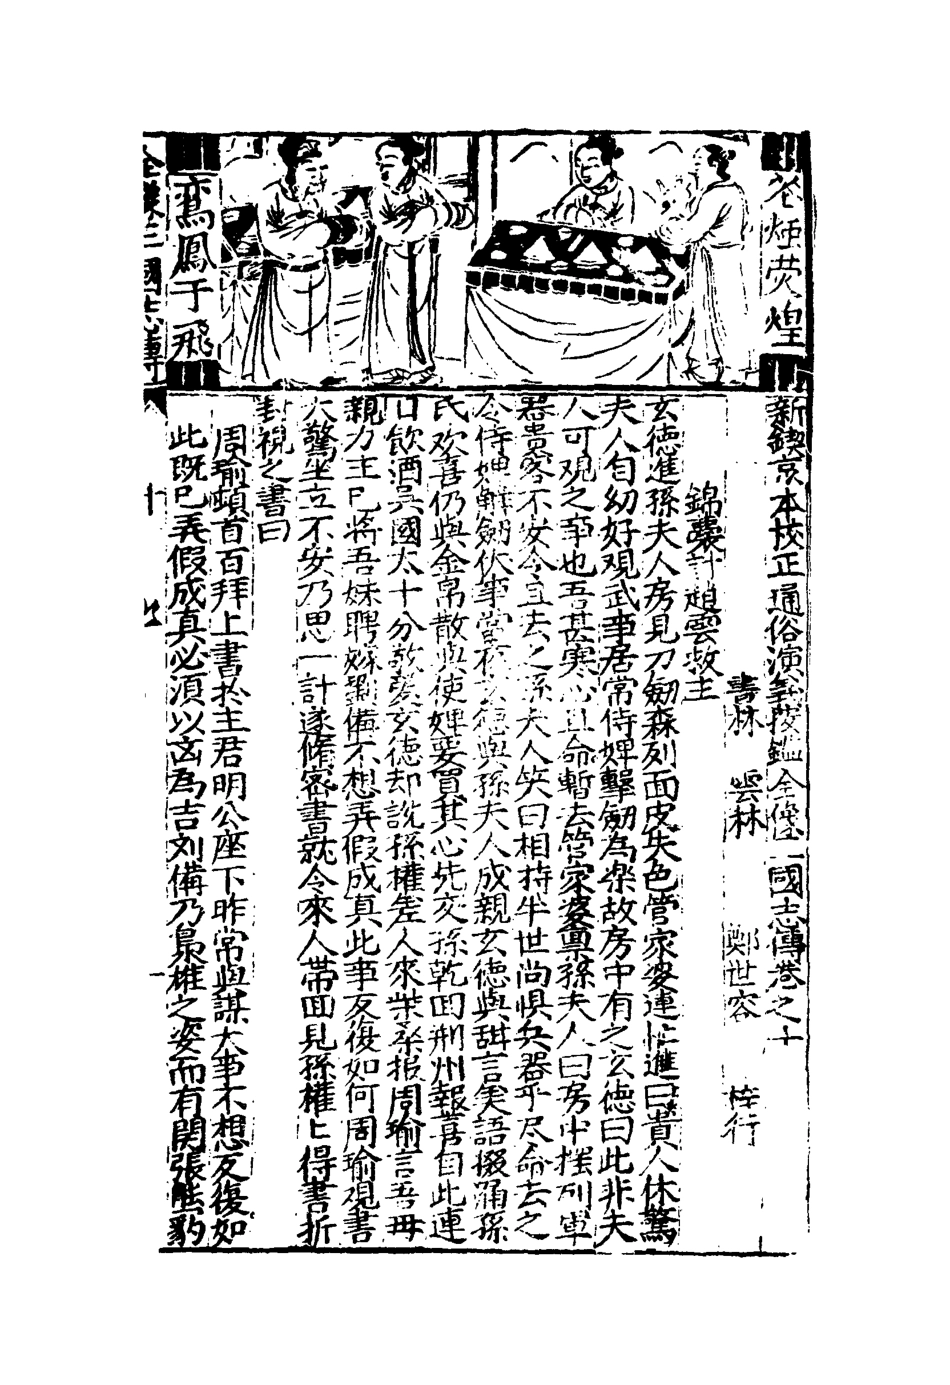 花烟荧煌
鸞鳳于飛
新鍥京本校正通俗演義按鑑全像三國志傳卷之十
書林 雲林 鄭世容 梓行
錦囊計趙雲救主
玄德進孫夫人房見刀劒森列面皮失色管家婆連忙進曰貴人休驚
夫人自幼好观武事居常侍婢擊劒為楽故房中有之玄德曰此非夫
人可观之事也吾甚寒心且命暫去管家婆禀孫夫人曰房中摆列軍
器贵客不安今且去之孫夫人笑曰相持半世尚惧兵器乎尽命去之
令侍婢解劒伏事當夜玄德與孫夫人成親玄德與甜言美語掇涌孫
氏欢喜仍與金帛散與使婢要買其心先交孫乾囬荆州報喜自此連
日飲酒吳國太十分敬愛玄德却説孫權差人來柴桑报周瑜言吾母
親力主已將吾妹聘嫁劉備不想弄假成真此事反復如何周瑜視書
大驚坐立不安乃思一計遂修密書就令來人帶囬見孫權〻得書折
封視之書曰
周瑜頓首百拜上書扵主君明公座下昨常與謀大事不想反復如
此既已弄假成真必須以凶為吉刘備乃梟雄之姿而有関張熊豹
全像三國志傳
十